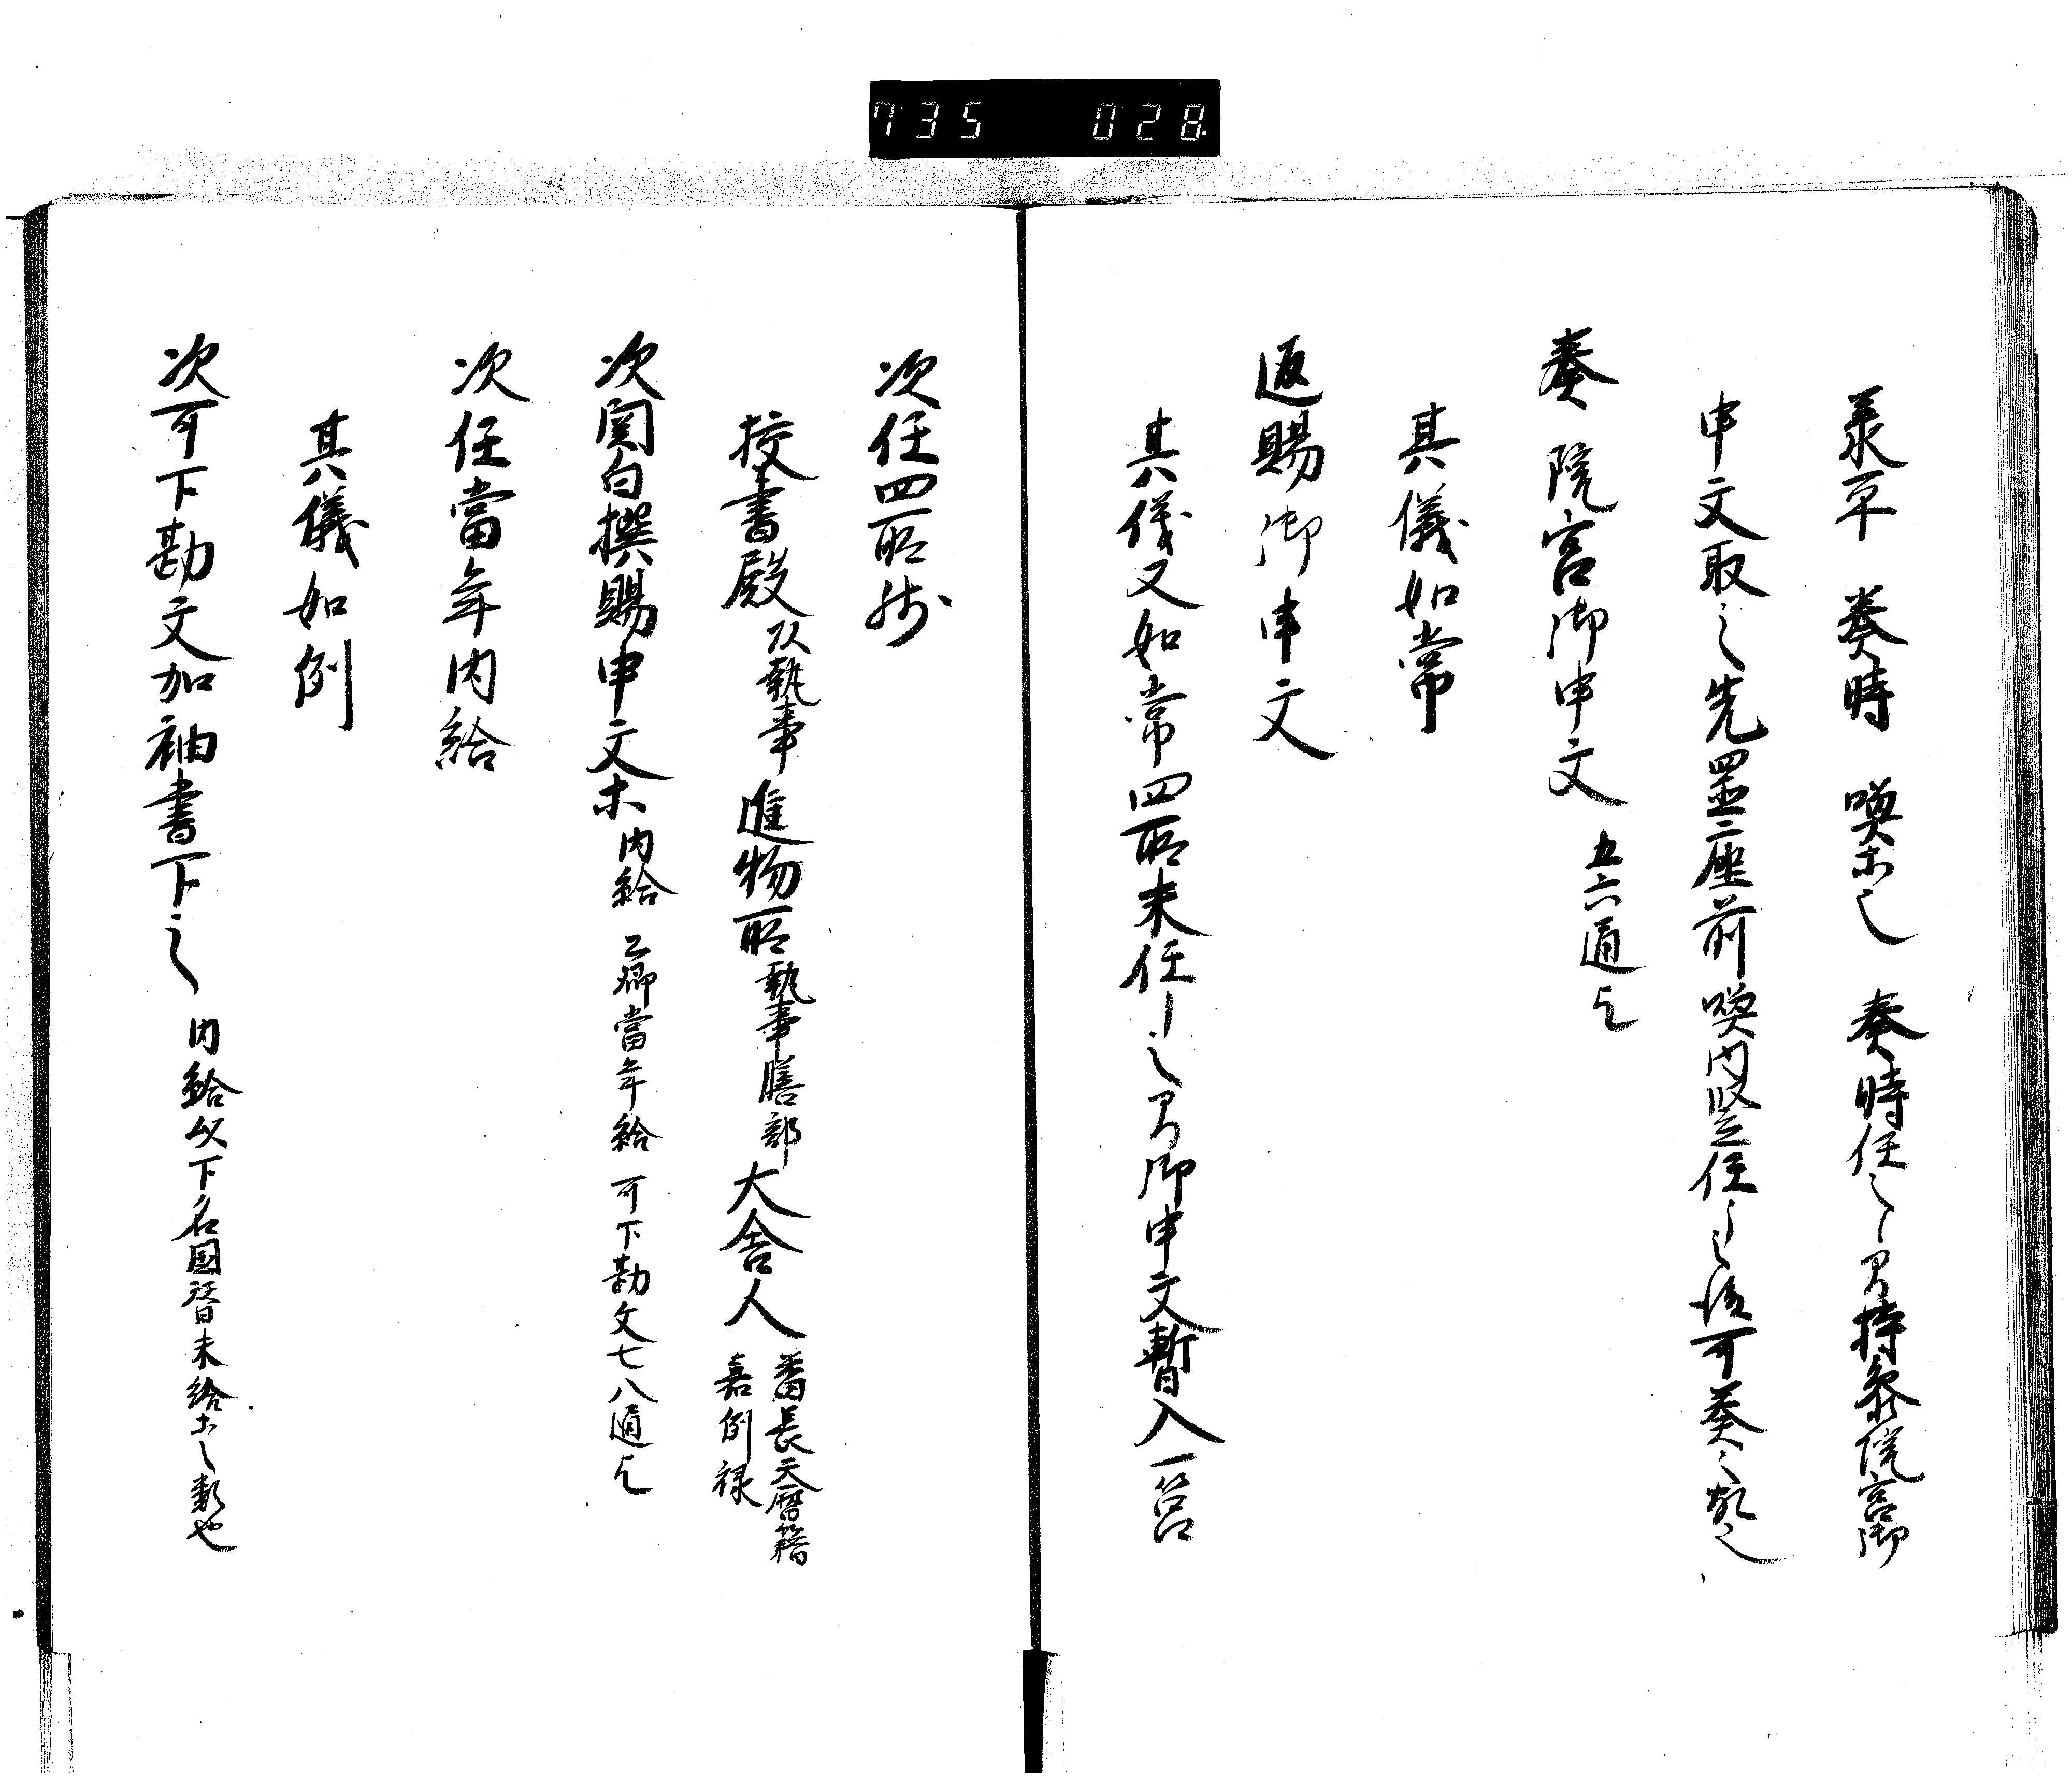 735 028
奏時 喚 奏時任之間持参院宮御
申文取之先置二座前喚内竪任之後可奏之
奏 院宮御申文 五六通
其儀如常
返賜御申文
其儀又如常四所未任之間御申文暫入一筥
次任四所
校書殿 執事 進物所 執事膳部 大舎人 番長天暦籍 嘉例禄
次関白撰賜申文 内給 公卿當年給 可下勘文七八通
次任當年内給
其儀如例
次可下勘文加袖書下之 内給以下名国替未給等之類也